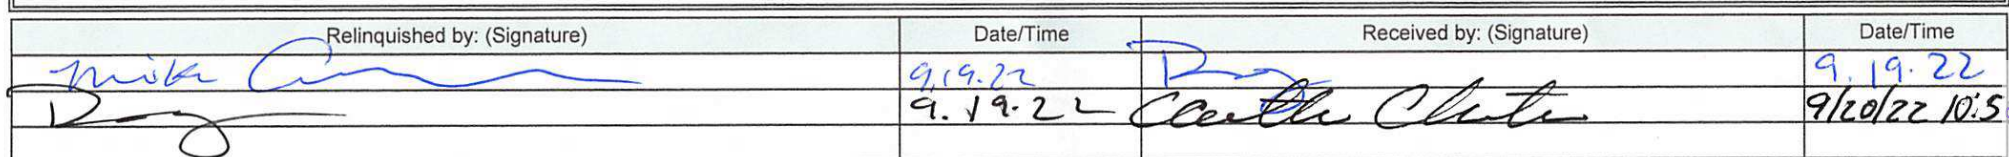 Relinquished by: (Signature) Date/Time Received by: (Signature) Date/Time
Mike 9.19.22 9.19.22
9.19.22 9/20/22 10:5